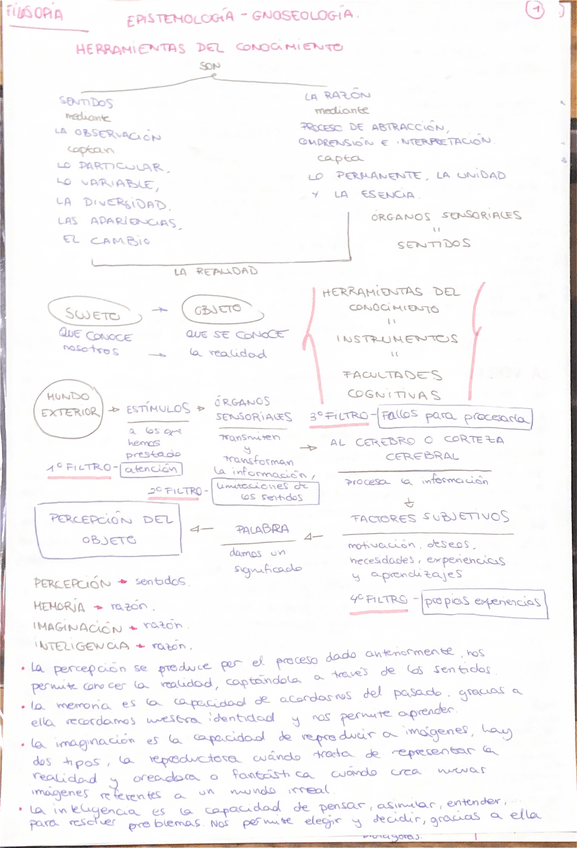 FILOSOFÍA
EPISTEMOLOGÍA - GNOSEOLOGÍA.
1
HERRAMIENTAS DEL CONOCIMIENTO
SON
SENTIDOS
mediante
LA OBSERVACIÓN
captan
LO PARTICULAR,
LO VARIABLE,
LA DIVERSIDAD.
LAS APARIENCIAS,
EL CAMBIO
LA RAZÓN
mediante
PROCESO DE ABSTRACCIÓN,
COMPRENSIÓN E INTERPRETACIÓN.
capta
LO PERMANENTE, LA UNIDAD
Y LA ESENCIA.
ÓRGANOS SENSORIALES
"
SENTIDOS
LA REALIDAD
SUJETO → OBJETO
QUE CONOCE QUE SE CONOCE
nosotros → la realidad
HERRAMIENTAS DEL
CONOCIMIENTO
"
INSTRUMENTOS
"
FACULTADES
COGNITIVAS
MUNDO
EXTERIOR
→ ESTÍMULOS →
a los que
hemos
prestado
1º FILTRO - atención
ÓRGANOS
SENSORIALES
transmiten
y
transforman
la información,
2º FILTRO - limitaciones de
los sentidos
3º FILTRO - Fallos para procesarla
→ AL CEREBRO O CORTEZA
CEREBRAL
procesa la información
↓
FACTORES SUBJETIVOS
motivación, deseos,
necesidades, experiencias
y aprendizajes
4º FILTRO - propias experiencias
← PALABRA ←
damos un
significado
PERCEPCIÓN DEL
OBJETO
PERCEPCIÓN → sentidos.
MEMORIA → razón.
IMAGINACIÓN → razón.
INTELIGENCIA → razón.
• La percepción se produce por el proceso dado anteriormente, nos
permite conocer la realidad, captándola a través de los sentidos.
• La memoria es la capacidad de acordarnos del pasado, gracias a
ella recordamos nuestra identidad y nos permite aprender.
• La imaginación es la capacidad de reproducir a imágenes, hay
dos tipos, la reproductora cuándo trata de representar la
realidad y creadora o fantástica cuando crea nuevas
imágenes referentes a un mundo irreal.
• La inteligencia es la capacidad de pensar, asimilar, entender,
para resolver problemas. Nos permite elegir y decidir, gracias a ella